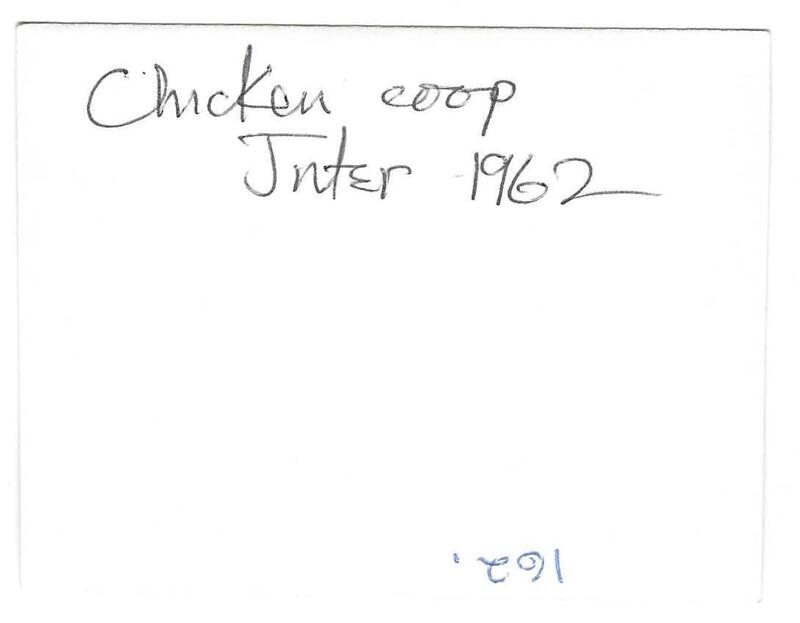 Chicken coop
Inter 1962
162.